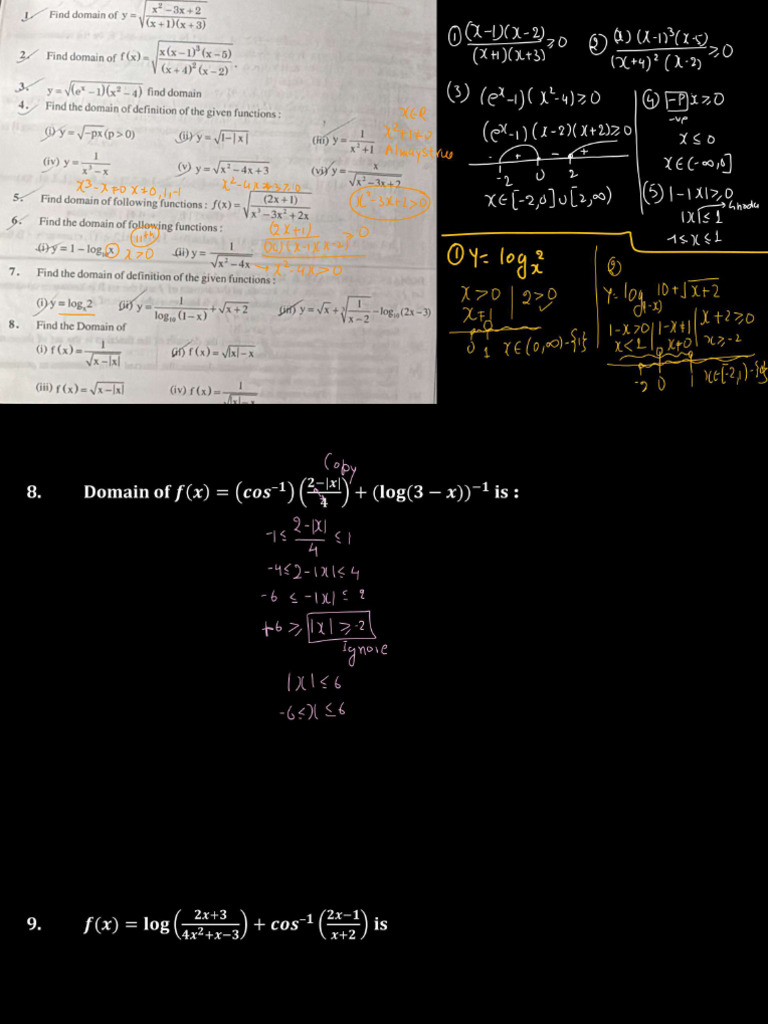 1. Find domain of y = √((x² − 3x + 2)/((x + 1)(x + 3)))
2. Find domain of f(x) = √((x(x − 1)³(x − 5))/((x + 4)²(x − 2))).
3. y = √((eˣ − 1)(x² − 4)) find domain
4. Find the domain of definition of the given functions :
x∈R
(i) y = √(−px) (p > 0) (ii) y = √(1 − |x|) (iii) y = 1/(x² + 1)
Always true
(iv) y = 1/(x³ − x) (v) y = √(x² − 4x + 3) (vi) y = x/√(x² − 3x + 2)
x³ − x ≠ 0 x ≠ 0, 1, −1 x² − 4x + 3 ≥ 0 x² − 3x + 2 > 0
5. Find domain of following functions : f(x) = √((2x + 1)/(x³ − 3x² + 2x))
6. Find the domain of following functions :
(2x+1)/((x)(x−1)(x−2)) ≥ 0
(i) y = 1 − log₁₀x x > 0 (ii) y = 1/√(x² − 4x) → x² − 4x > 0
7. Find the domain of definition of the given functions :
(i) y = logₓ2 (ii) y = 1/log₁₀(1 − x) + √(x + 2) (iii) y = √x + ∛(1/(x − 2)) − log₁₀(2x − 3)
8. Find the Domain of
(i) f(x) = 1/√(x − |x|) (ii) f(x) = √(|x| − x)
(iii) f(x) = √(x − |x|) (iv) f(x) = 1/√(|x| − x)
① (x−1)(x−2)/((x+1)(x+3)) ≥ 0 ② (x)(x−1)³(x−5)/((x+4)²(x−2)) ≥ 0
(3) (eˣ−1)(x²−4) ≥ 0
(eˣ−1)(x−2)(x+2) ≥ 0
- + - +
-2 0 2
x∈[−2,0]∪[2,∞)
(4) −P x ≥ 0
-ve
x ≤ 0
x∈(−∞,0]
(5) 1−|x| ≥ 0
|x| ≤ 1
−1 ≤ x ≤ 1
① y = logₓ2
x > 0 | 2 > 0
x ≠ 1
0 1 x∈(0,∞)−{1}
②
1−x>0 | 1−x≠1 | x+2 ≥ 0
x<1 | x≠0 | x ≥ −2
-2 0
8. Domain of f(x) = (cos⁻¹)((2−|x|)/4) + (log(3 − x))⁻¹ is :
Copy
−1 ≤ (2−|x|)/4 ≤ 1
−4 ≤ 2−|x| ≤ 4
−6 ≤ −|x| ≤ 2
+6 ≥ |x| ≥ −2
Ignore
|x| ≤ 6
−6 ≤ x ≤ 6
9. f(x) = log((2x+3)/(4x²+x−3)) + cos⁻¹((2x−1)/(x+2)) is